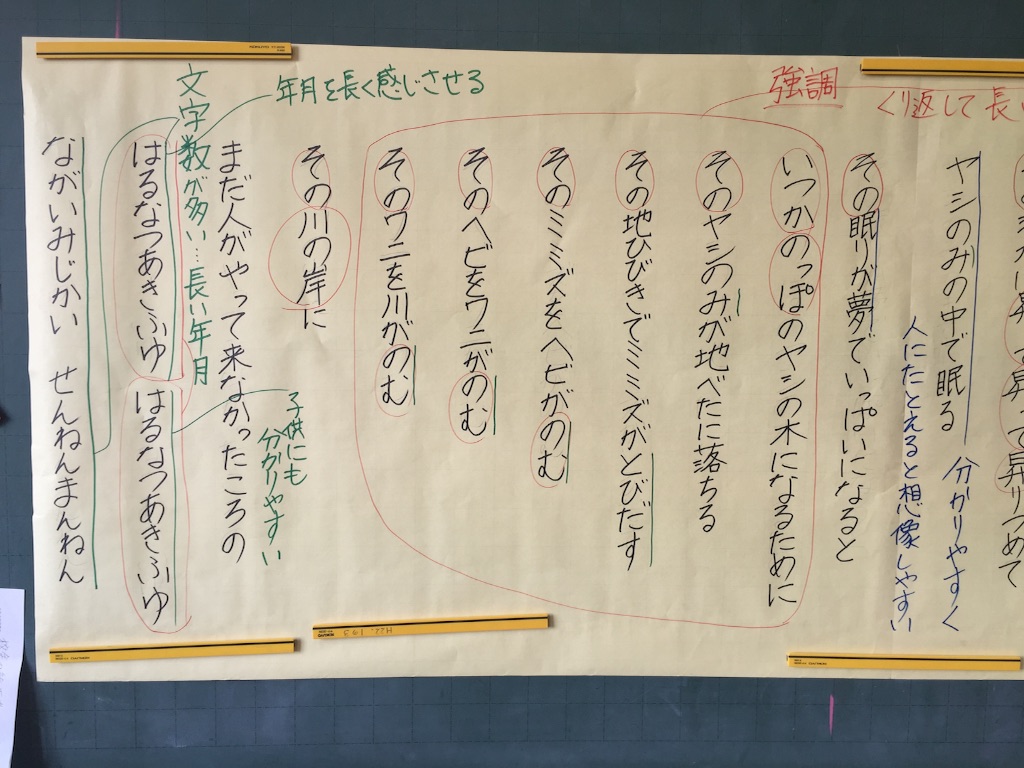 強調
くり返して長
ヤシのみの中で眠る
分かりやすく
人にたとえると想像しやすい
その眠りが夢でいっぱいになると
いつかのっぽのヤシの木になるために
そのヤシのみが地べたに落ちる
その地ひびきでミミズがとびだす
そのミミズをヘビがのむ
そのヘビをワニがのむ
そのワニを川がのむ
その川の岸に
まだ人がやって来なかったころの
はるなつあきふゆ はるなつあきふゆ
ながいみじかい せんねんまんねん
年月を長く感じさせる
文字数が多い…長い年月
子供にも
分かりやすい